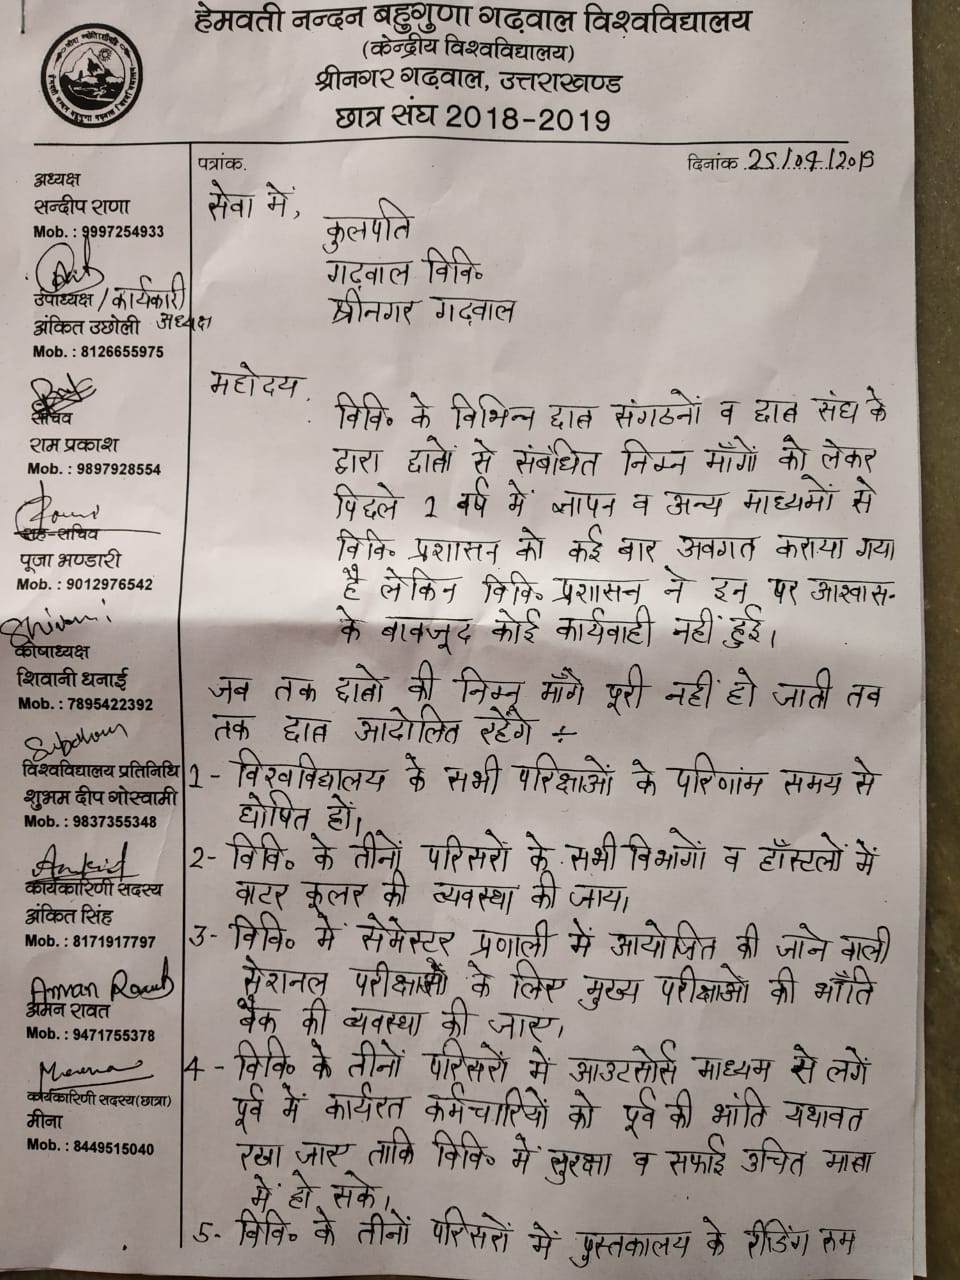 हेमवती नन्दन बहुगुणा गढ़वाल विश्वविद्यालय
(केन्द्रीय विश्वविद्यालय)
श्रीनगर गढ़वाल, उत्तराखण्ड
छात्र संघ 2018-2019
पत्रांक.
दिनांक 25/07/2019
अध्यक्ष
सन्दीप राणा
Mob. : 9997254933
उपाध्यक्ष / कार्यकारी
अंकित उछोली अध्यक्ष
Mob. : 8126655975
सचिव
राम प्रकाश
Mob. : 9897928554
सह-सचिव
पूजा भण्डारी
Mob. : 9012976542
Shivani
कोषाध्यक्ष
शिवानी धनाई
Mob. : 7895422392
विश्वविद्यालय प्रतिनिधि
शुभम दीप गोस्वामी
Mob. : 9837355348
Ankit
कार्यकारिणी सदस्य
अंकित सिंह
Mob. : 8171917797
Aman Rawat
अमन रावत
Mob. : 9471755378
Meena
कार्यकारिणी सदस्य(छात्रा)
मीना
Mob. : 8449515040
सेवा में,
कुलपति
गढ़वाल वि०वि०
श्रीनगर गढ़वाल
महोदय
वि०वि० के विभिन्न छात्र संगठनों व छात्र संघ के
द्वारा छात्रों से संबंधित निम्न माँगों को लेकर
पिछले 1 वर्ष में ज्ञापन व अन्य माध्यमों से
वि०वि० प्रशासन को कई बार अवगत कराया गया
है लेकिन वि०वि० प्रशासन ने इन पर आश्वासन
के बावजूद कोई कार्यवाही नहीं हुई।
जब तक छात्रों की निम्न माँगे पूरी नहीं हो जाती तब
तक छात्र आंदोलित रहेंगे ÷
1- विश्वविद्यालय के सभी परिक्षाओं के परिणांम समय से
घोषित हों।
2- वि०वि० के तीनों परिसरों के सभी विभागों व हॉस्टलों में
वाटर कूलर की व्यवस्था की जाय।
3- वि०वि० में सेमेस्टर प्रणाली में आयोजित की जाने वाली
सेशनल परीक्षाओं के लिए मुख्य परीक्षाओं की भाँति
बैक की व्यवस्था की जाए।
4- वि०वि० के तीनों परिसरों में आउटसोर्स माध्यम से लगें
पूर्व में कार्यरत कर्मचारियों को पूर्व की भांति यथावत
रखा जाए ताकि वि०वि० में सुरक्षा व सफाई उचित मात्रा
में हो सके।
5- वि०वि० के तीनों परिसरों में पुस्तकालय के रीडिंग रूम